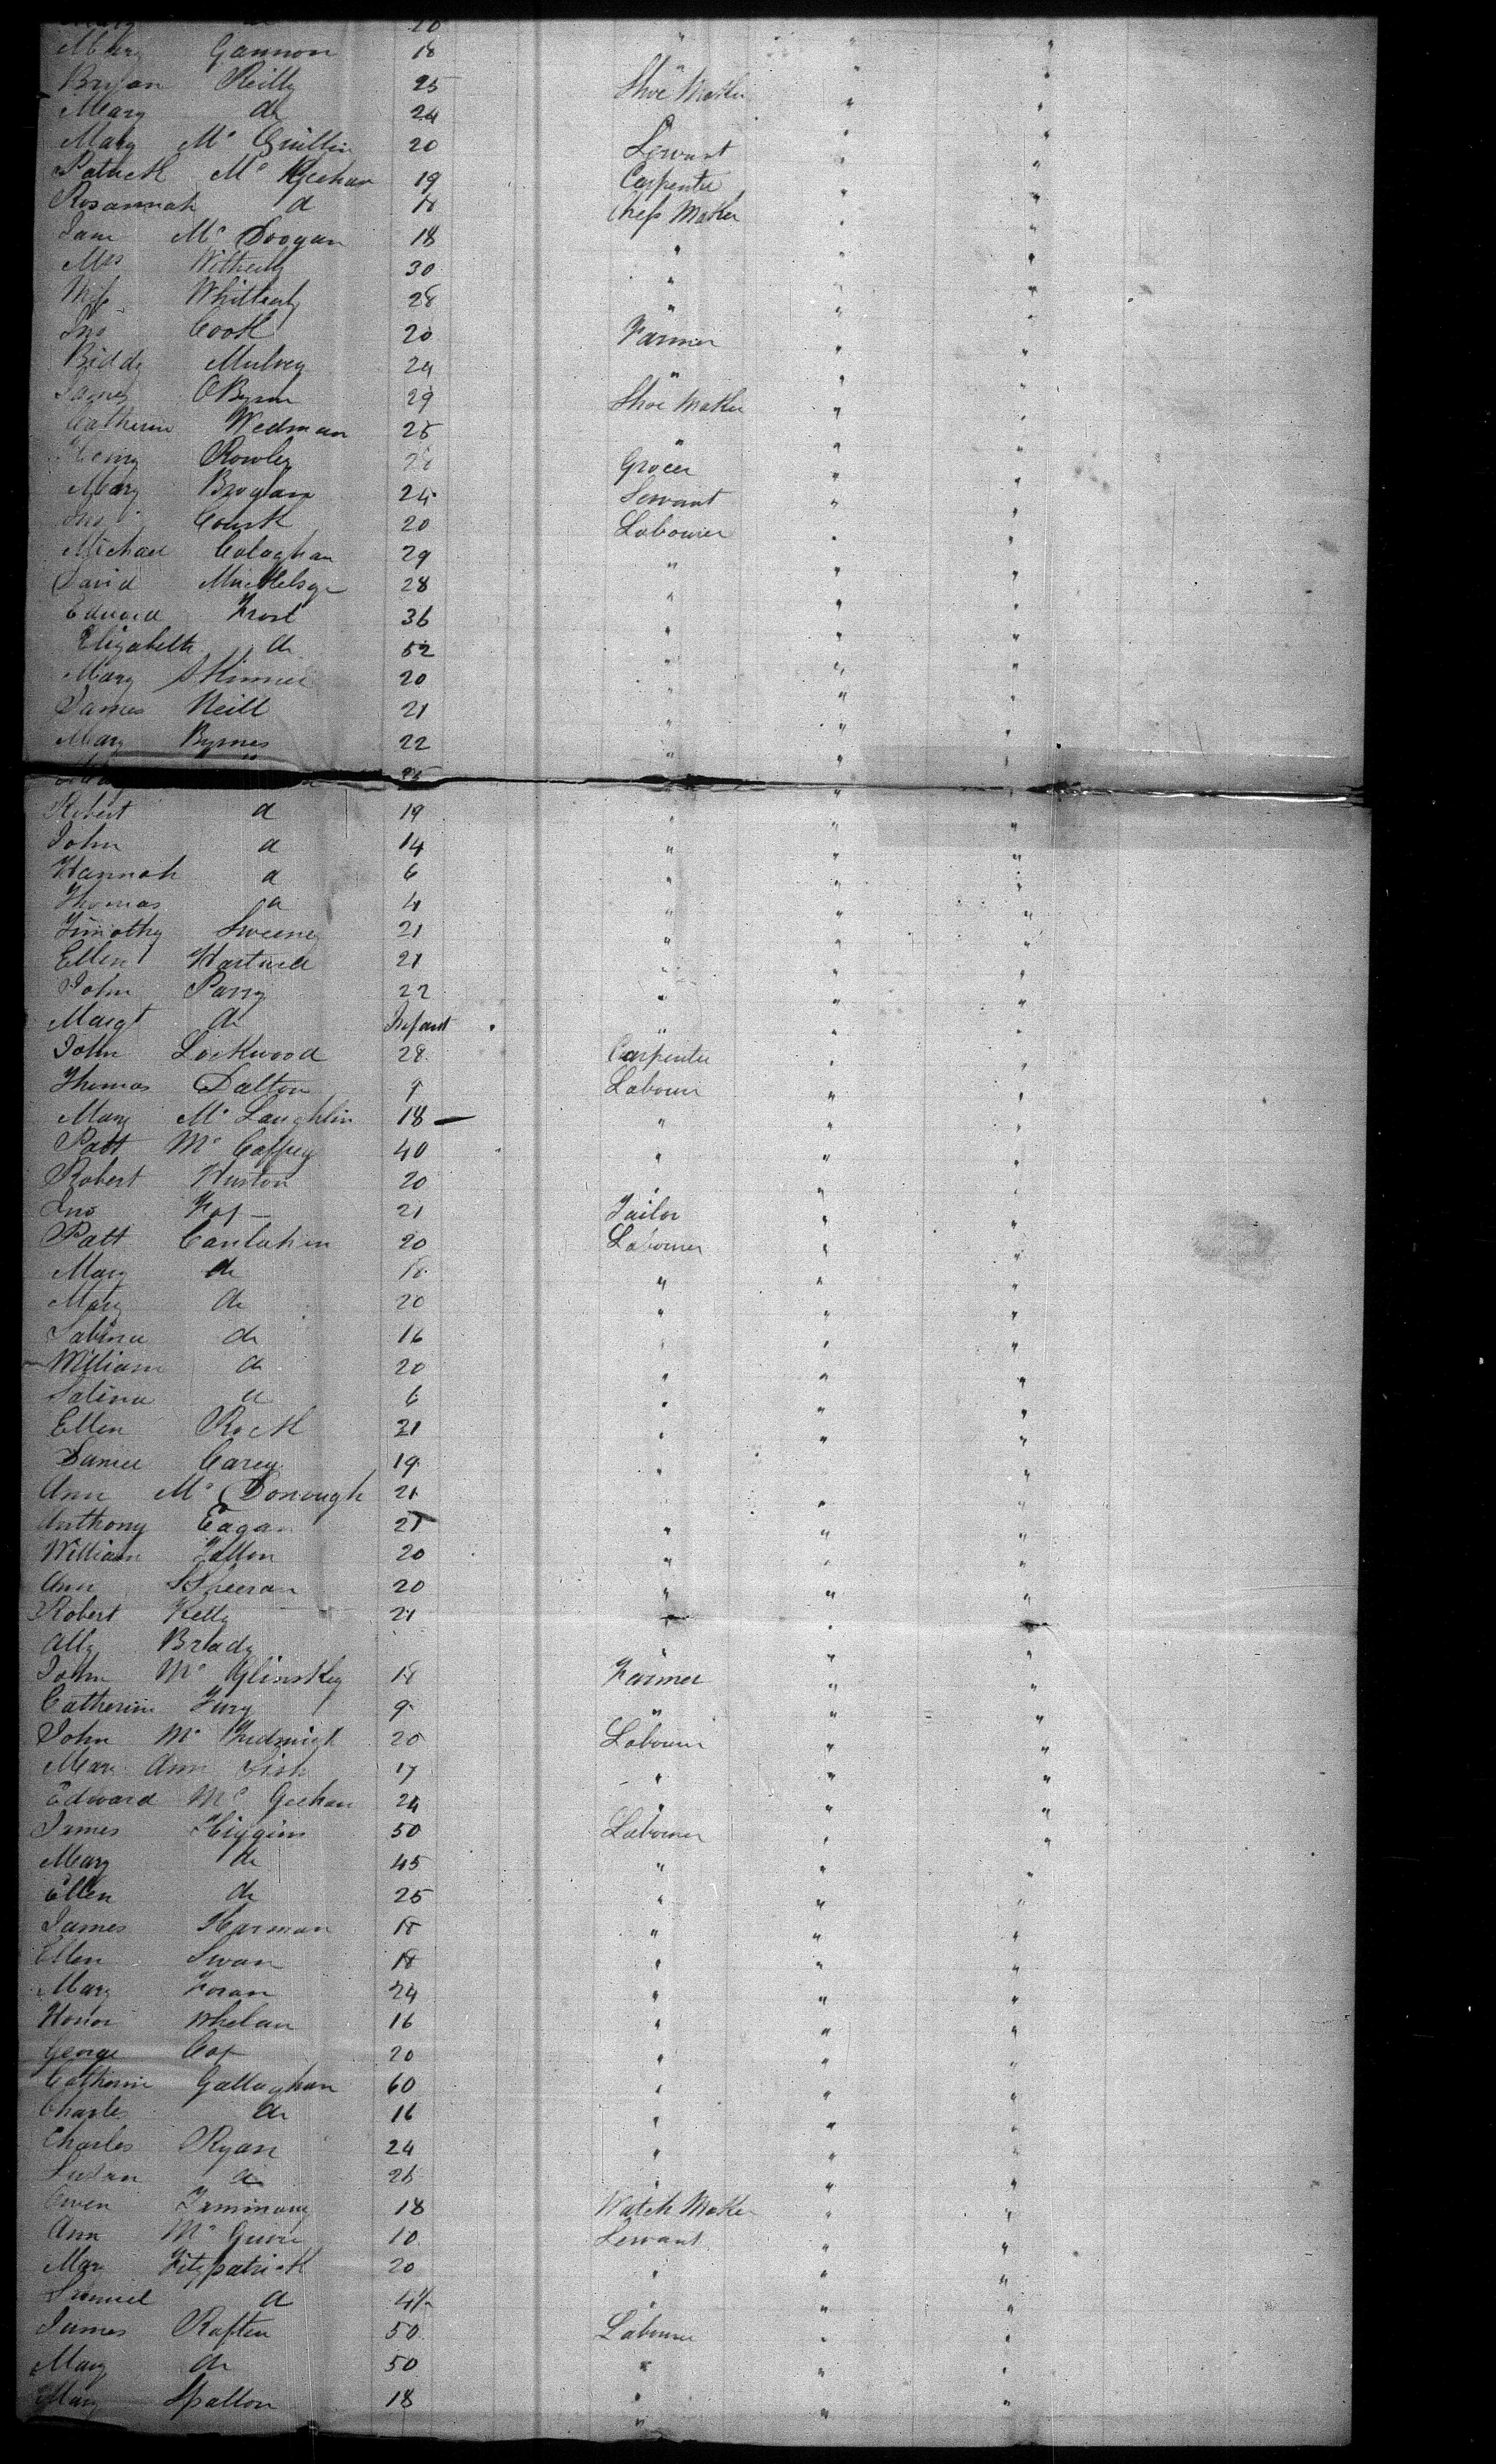 Mary do 20
Mary Gannon 18 " " "
Bryan Reilly 25 Shoe Maker " "
Mary do 24 " "
Mary Mc Quillin 20 Servant " "
Patrick Mc Keehan 19 Carpenter " "
Rosannah d 18 Maker " "
Jane Mc Doogan 18 " " "
Mrs Witherly 30 " " "
28 " " "
Jno Cook 20 Farmer " "
Biddy Mulvey 24 " " "
James OByrn 29 Shoe Maker " "
Catherine Wedman 25 " " "
Henry Rowley 28 Grocer " "
Mary Brogan 24 Servant " "
Jno 20 Labourer " "
Michael Calaghan 29 " " "
David 28 " " "
Edward Frost 36 " " "
Elizabeth do 52 " " "
Mary Skinner 20 " " "
James Neill 21 " " "
Mary Byrnes 22 " " "
25 " "
Robert d 19 " " "
John d 14 " " "
Hannah d 6 " " "
Thomas d 4 " " "
Timothy Sweeney 21 " " "
Ellen Hartwell 21 " " "
John Parry 22 " " "
Margt do Infant " " "
John Lockwood 28 Carpenter " "
Thomas Dalton 9 Labourer " "
Mary Mc Laughlin 18 " " "
Patt Mc Caffrey 40 " " "
Robert Huston 20 " " "
Jno Fox 21 Tailor " "
Patt Canlahan 20 Labourer " "
Mary do 18 " " "
Mary do 20 " " "
Sabina do 16 " " "
William do 20 " " "
Salina d 6 " " "
Ellen Rock 21 " " "
Daniel Carey 19 " " "
Ann Mc Donough 21 " "
Anthony Eagan 21 " " "
William Fallon 20 " " "
Ann Sheeran 20 " " "
Robert Kelly 21 " " "
Ally Brady " " "
John Mc Glinskey 18 Farmer " "
Catherine Fury 9 " " "
John Mc 20 Labourer " "
Mary Ann 17 " " "
Edward Mc Geehan 24 " " "
James Higgins 50 Labourer " "
Mary do 45 " " "
Ellen do 25 " " "
James Harman 18 " " "
Ellen Swan 18 " " "
Mary Foran 24 " " "
Honor Whelan 16 " " "
George Cox 20 " " "
Catherine Gallaghan 60 " " "
Charles do 16 " " "
Charles Ryan 24 " " "
Susan do 26 " " "
Owen 18 Watch Maker " "
Ann Mc Guire 10 Servant " "
Mary Fitzpatrick 20 " " "
Samuel d " " "
James Raften 50 Labourer " "
Mary do 50 " " "
Mary Spallon 18 " " "